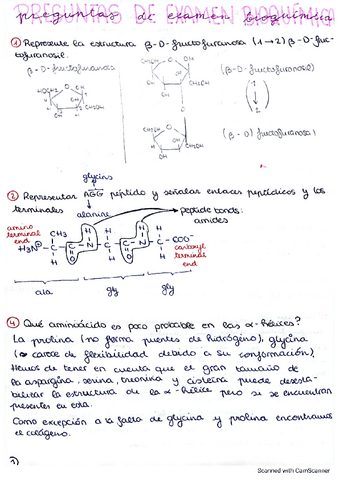 PREGUNTAS DE EXAMEN BIOQUÍMICA
① Represente la estructura β-D-fructofuranosa (1→2) β-D-fruc-
tofuranosil.
β-D-fructofuranosa
(β-D-fructofuranosa 2)
HOCH₂
CH₂OH
OH
H
(1
↓
1)
(β-D) fructofuranosa 1
glycins
② Representar AGG péptido y señalar enlaces peptídicos y los
terminales
alanine
peptide bonds:
amides
amino
terminal
end
H₃N⊕
CH₃
H
C
N
O
COO⁻
carboxyl
terminal
end
ala
gly
gly
④ Qué aminoácido es poco probable en las α-hélices?
La prolina (no forma puentes de hidrógeno), glycina
(carece de flexibilidad debido a su conformación).
Hemos de tener en cuenta que el gran tamaño de
la aspargina, serina, treonina y cisteína puede desesta-
bilizar la estructura de la α-hélice pero si se encuentran
presentes en esta.
Como excepción a la falta de glycina y prolina encontramos
el colágeno.
Scanned with CamScanner